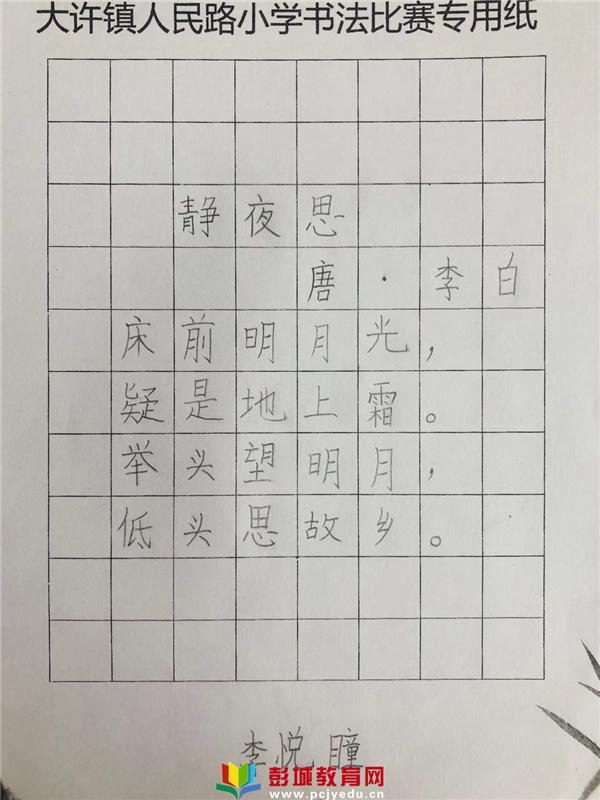 大许镇人民路小学书法比赛专用纸
静夜思
唐·李白
床前明月光，
疑是地上霜。
举头望明月，
低头思故乡。
李悦瞳
彭城教育网
www.pcjyedu.cn